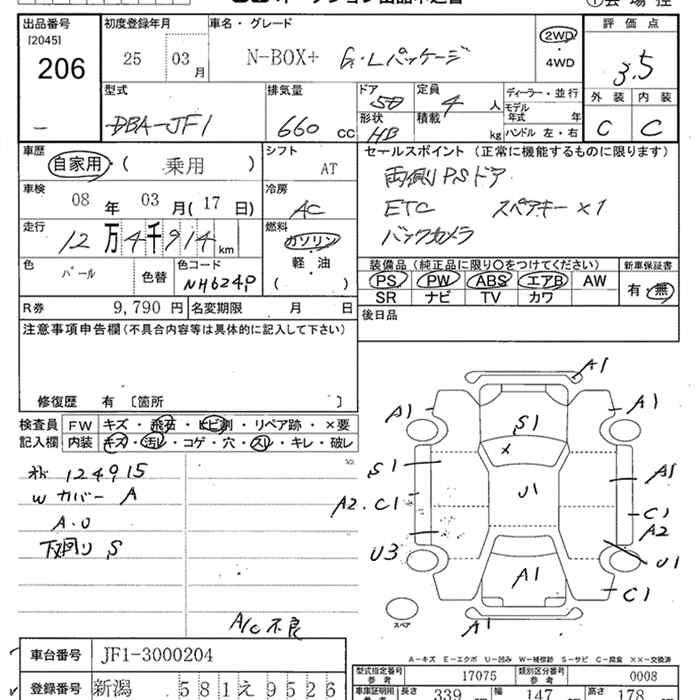 出品番号 初度登録年月 車名・グレード 評価点
[2045] 206 25 03月 N-BOX+ G・Lパッケージ 2WD・4WD 3.5
型式 排気量 ドア 定員 ディーラー・並行 外装 内装
DBA-JF1 660 cc 5D 4人 モデル年式 年 C C
形状 HB 積載 kg ハンドル 左・右
車歴 シフト セールスポイント (正常に機能するものに限ります)
自家用・( 乗用 ) AT 両側PSドア
車検 冷房 ETC スペアキー×1
08年 03月(17日) AC バックカメラ
走行 燃料
12万4千914km ガソリン・軽・油 ( )
色 色替 色コード 装備品 (純正品に限り○をつけてください) 新車保証書
パール NH624P PS PW ABS エアB AW 有・無
SR ナビ TV カワ
R券 9,790円 名変期限 月 日 後日品
注意事項申告欄 (不具合内容等は具体的に記入して下さい)
修復歴 有 [箇所 ]
検査員 FW キズ・飛石・ヒビ割・リペア跡・×要
記入欄 内装 キズ・汚レ・コゲ・穴・スレ・キレ・破レ
124915
Wカバー A
A.O
下回り S
A/C不良
A1
A1 A1
S1
S1 A1
U1
A2.C1 C1
A2
U3 U1
A1 C1
A1
スペア
A-キズ E-エクボ U-凹み W-補修跡 S-サビ C-腐食 ××-交換済
車台番号 JF1-3000204 型式指定番号 参考 17075 類別区分番号 参考 0008
登録番号 新潟 581え9526 長さ 339 幅 147 高さ 178